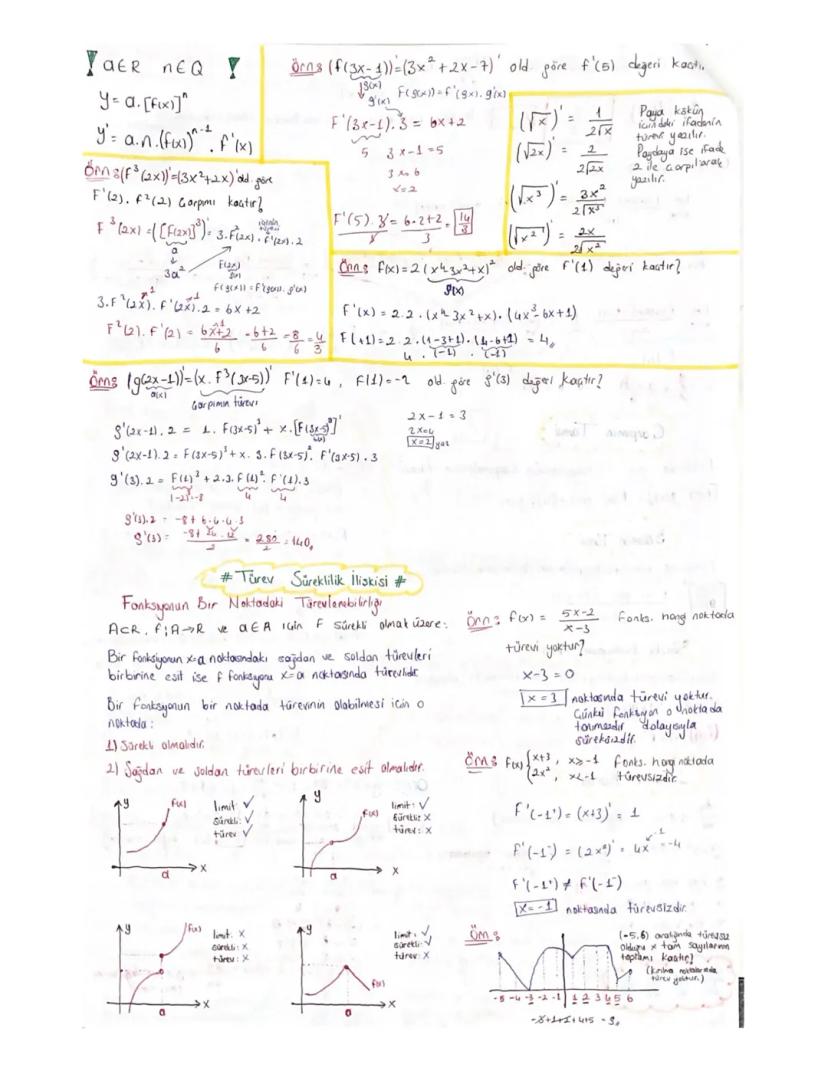 ! a∈R n∈Q !
y = a.[f(x)]ⁿ
y' = a.n.(f(x))ⁿ⁻¹ . f'(x)
Örn: (f³(2x))' = (3x²+2x)' old. göre
f'(2). f²(2) çarpımı kaçtır?
f³(2x) = ([f(2x)]³)' = 3.f²(2x).f'(2x).2
içinin türevi
a
3a²
f(2x)
g(x)
f(g(x)) = f'(g(x)).g'(x)
3.f²(2x).f'(2x).2 = 6x+2
f²(2).f'(2) = 6x+2 / 6 = 6+2 / 6 = 8/6 = 4/3
Örn: (f(3x-1))' = (3x²+2x-7)' old. göre f'(5) değeri kaçtır.
g(x)
g'(x)
f(g(x)) = f'(gx).g'(x)
f'(3x-1).3 = 6x+2
5 3x-1=5
3x=6
x=2
f'(5).3 = 6.2+2 / 3 = 14/3
(√x)' = 1 / 2√x
(√2x)' = 2 / 2√2x
(√x³)' = 3x² / 2√x³
(√x²)' = 2x / 2√x²
Paya kökün
içindeki ifadenin
türevi yazılır.
Paydaya ise ifade
2 ile çarpılarak
yazılır.
Örn: f(x) = 2(x⁴-3x²+x)² old. göre f'(1) değeri kaçtır?
g(x)
f'(x) = 2.2.(x⁴-3x²+x).(4x³-6x+1)
f(+1) = 2.2.(1-3+1).(4-6+1) = 4
4 . (-1) . (-1)
Örn: (g(2x-1))' = (x.f³(3x-5))' f'(1)=4, f(1)=-2 old. göre g'(3) değeri kaçtır?
a(x)
Çarpımın türevi
g'(2x-1).2 = 1.f(3x-5)³ + x.[f(3x-5)³]'
g'(2x-1).2 = f(3x-5)³ + x.3.f(3x-5)².f'(3x-5).3
g'(3).2 = f(1)³ + 2.3.f(1)².f'(1).3
(-2)³=-8 4 4
g'(3).2 = -8+6.4.4.3
g'(3) = -8+24.12 / 2 = 280 / 2 = 140
2x-1=3
2x=4
x=2 yaz
# Türev Süreklilik İlişkisi #
Fonksiyonun Bir Noktadaki Türevlenebilirliği
A⊂R, f:A→R ve a∈A için f sürekli olmak üzere:
Bir fonksiyonun x=a noktasındaki sağdan ve soldan türevleri
birbirine eşit ise f fonksiyonu x=a noktasında türevlidir.
Bir fonksiyonun bir noktada türevinin olabilmesi için o
noktada:
1) Sürekli olmalıdır.
2) Sağdan ve soldan türevleri birbirine eşit olmalıdır.
y f(x) a x
limit: ✓
sürekli: ✓
türev ✓
y f(x) a x
limit: ✓
sürekli: X
türev: X
y f(x) a x
limit: X
sürekli: X
türev: X
y f(x) a x
limit: ✓
sürekli: ✓
türev: X
Örn: f(x) = 5x-2 / x-3 fonks. hangi noktada
türevi yoktur?
x-3=0
x=3 noktasında türevi yoktur.
Çünkü fonksiyon o noktada
tanımsızdır dolayısıyla
süreksizdir.
Örn: f(x) { x+3, x≥-1 fonks. hangi noktada
2x², x<-1 türevsizdir
f'(-1⁺) = (x+3)' = 1
f'(-1⁻) = (2x²)' = 4x = -4
-1
f'(-1⁺) ≠ f'(-1⁻)
x=-1 noktasında türevsizdir.
Örn:
(-5,6) aralığında türevsiz
olduğu x tam sayılarının
toplamı kaçtır?
(kırılma noktalarında
türev yoktur.)
-5 -4 -3 -2 -1 1 2 3 4 5 6
-3+1+1+4+5 = 3